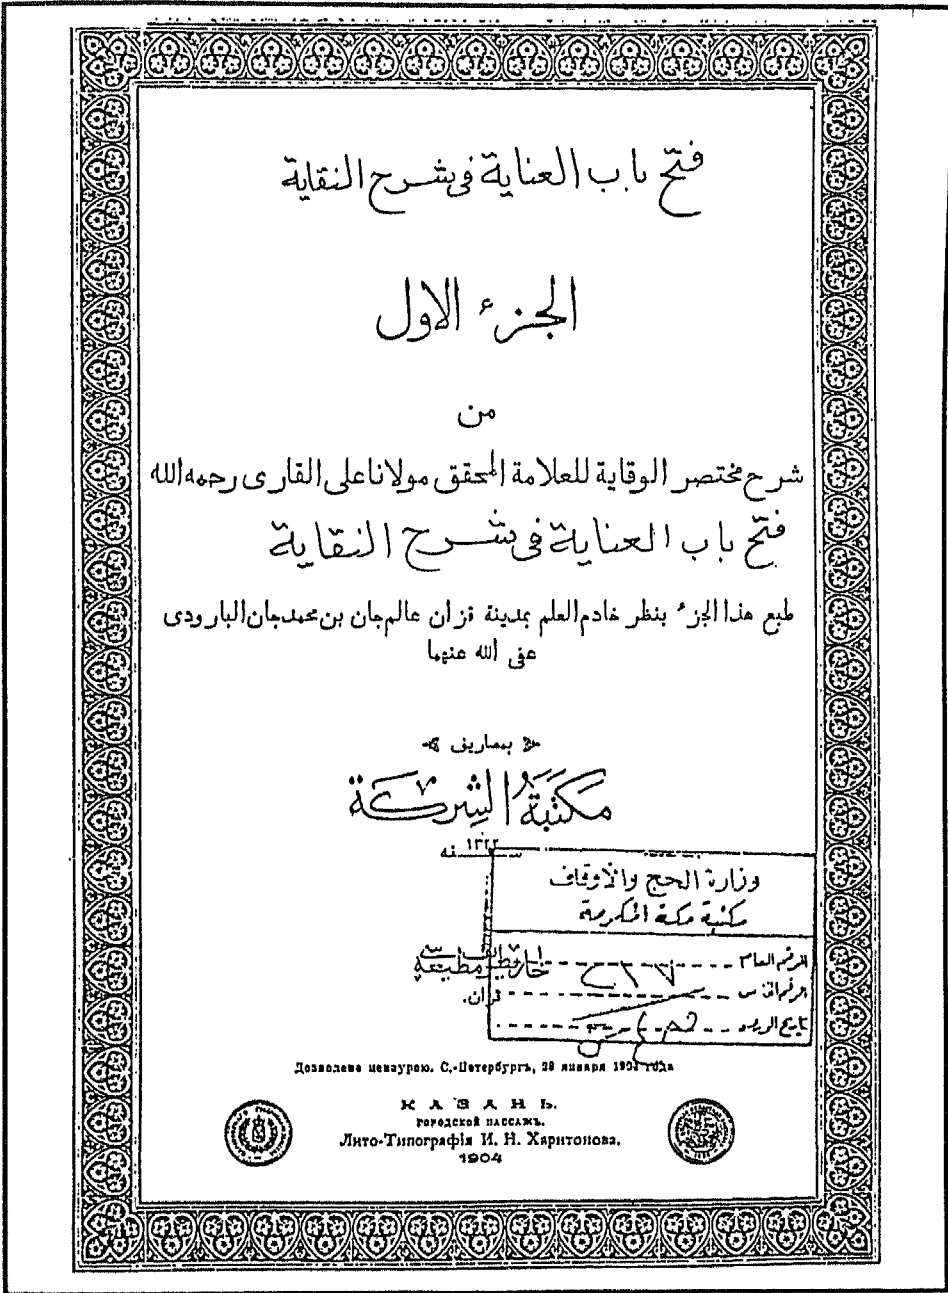 فتح باب العناية فى شرح النقاية
الجزء الاول
من
شرح مختصر الوقاية للعلامة المحقق مولانا على القارى رحمه الله
فتح باب العناية فى شرح النقاية
طبع هذا الجزء بنظر خادم العلم بمدينة قزان عالم جان بن محمد جان البارودى
عفى الله عنهما
بمصاريف
مكتبة الشركة
سنه ١٣٢٢
وزارة الحج والاوقاف
مكتبة مكة المكرمة
الرقم العام
مطبعه سى
قزان.
تاريخ الورود
Дозволено цензурою. С.-Петербургъ, 28 января 1904 года
КАЗАНЬ.
ГОРОДСКОЙ ПАССАЖЪ.
Лито-Типографія И. Н. Харитонова.
1904